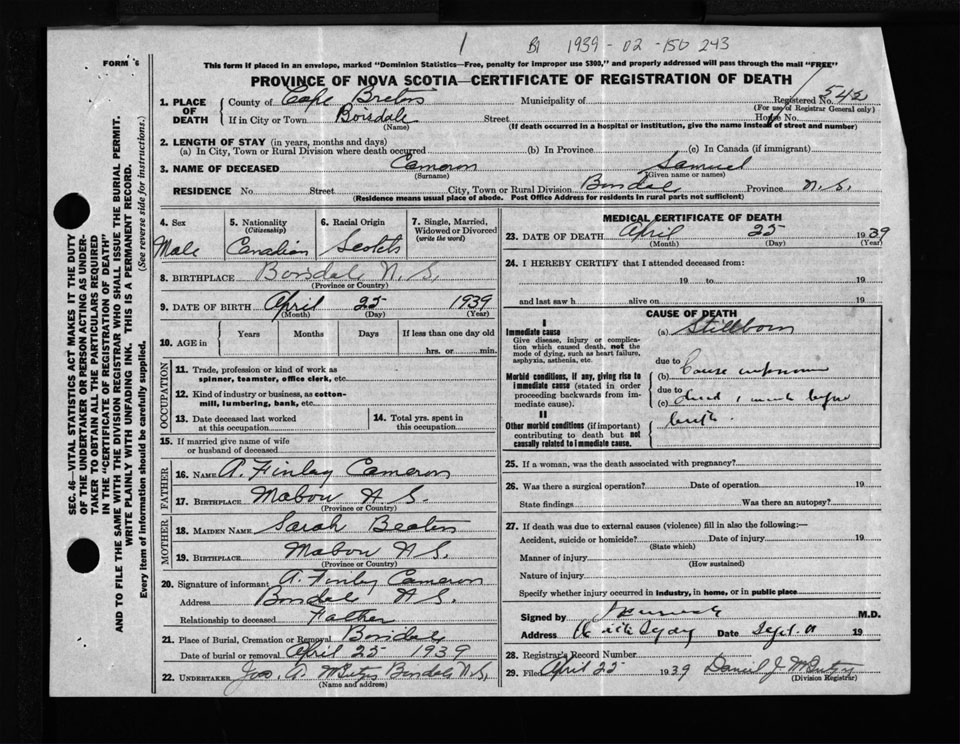 1 B1 1939 - 02 - 150 243
FORM 6
This form if placed in an envelope, marked "Dominion Statistics—Free, penalty for improper use $300," and properly addressed will pass through the mail "FREE"
PROVINCE OF NOVA SCOTIA—CERTIFICATE OF REGISTRATION OF DEATH
1. PLACE OF DEATH
County of Cape Breton Municipality of Registered No. 542
(For use of Registrar General only)
If in City or Town Boisdale Street House No.
(Name) (If death occurred in a hospital or institution, give the name instead of street and number)
2. LENGTH OF STAY (in years, months and days)
(a) In City, Town or Rural Division where death occurred (b) In Province (c) In Canada (if immigrant)
3. NAME OF DECEASED Cameron Samuel
(Surname) (Given name or names)
RESIDENCE No. Street City, Town or Rural Division Boisdale Province N.S.
(Residence means usual place of abode. Post Office Address for residents in rural parts not sufficient)
4. Sex Male
5. Nationality (Citizenship) Canadian
6. Racial Origin Scotch
7. Single, Married, Widowed or Divorced (write the word)
8. BIRTHPLACE Boisdale N.S.
(Province or Country)
9. DATE OF BIRTH April 25 1939
(Month) (Day) (Year)
10. AGE in Years Months Days If less than one day old
hrs. or min.
OCCUPATION
11. Trade, profession or kind of work as spinner, teamster, office clerk, etc.
12. Kind of industry or business, as cotton-mill, lumbering, bank, etc.
13. Date deceased last worked at this occupation
14. Total yrs. spent in this occupation
15. If married give name of wife or husband of deceased
FATHER
16. NAME A. Finlay Cameron
17. BIRTHPLACE Mabou N.S.
(Province or Country)
MOTHER
18. MAIDEN NAME Sarah Beaton
19. BIRTHPLACE Mabou N.S.
(Province or Country)
20. Signature of informant A. Finlay Cameron
Address Boisdale N.S.
Relationship to deceased Father
21. Place of Burial, Cremation or Removal Boisdale
Date of burial or removal April 25 1939
22. UNDERTAKER Jos. A. Boisdale N.S.
(Name and address)
MEDICAL CERTIFICATE OF DEATH
23. DATE OF DEATH April 25 1939
(Month) (Day) (Year)
24. I HEREBY CERTIFY that I attended deceased from:
19 to 19
and last saw h alive on 19
CAUSE OF DEATH
I
Immediate cause
Give disease, injury or complication which caused death, not the mode of dying, such as heart failure, asphyxia, asthenia, etc.
(a) Stillborn
due to
Morbid conditions, if any, giving rise to immediate cause (stated in order proceeding backwards from immediate cause).
(b) Cause unknown
due to
(c) died 1 month before
birth.
II
Other morbid conditions (if important) contributing to death but not causally related to immediate cause.
25. If a woman, was the death associated with pregnancy?
26. Was there a surgical operation? Date of operation 19
State findings Was there an autopsy?
27. If death was due to external causes (violence) fill in also the following:—
Accident, suicide or homicide? Date of injury 19
(State which)
Manner of injury
(How sustained)
Nature of injury
Specify whether injury occurred in industry, in home, or in public place
Signed by M.D.
Address Sydney Date Sept. 19
28. Registrar's Record Number
29. Filed April 25 1939 Daniel J.
(Division Registrar)
SEC. 46—VITAL STATISTICS ACT MAKES IT THE DUTY
OF THE UNDERTAKER OR PERSON ACTING AS UNDERTAKER TO OBTAIN ALL THE PARTICULARS REQUIRED
IN THE "CERTIFICATE OF REGISTRATION OF DEATH"
AND TO FILE THE SAME WITH THE DIVISION REGISTRAR WHO SHALL ISSUE THE BURIAL PERMIT.
WRITE PLAINLY WITH UNFADING INK. THIS IS A PERMANENT RECORD.
Every item of information should be carefully supplied. (See reverse side for instructions.)